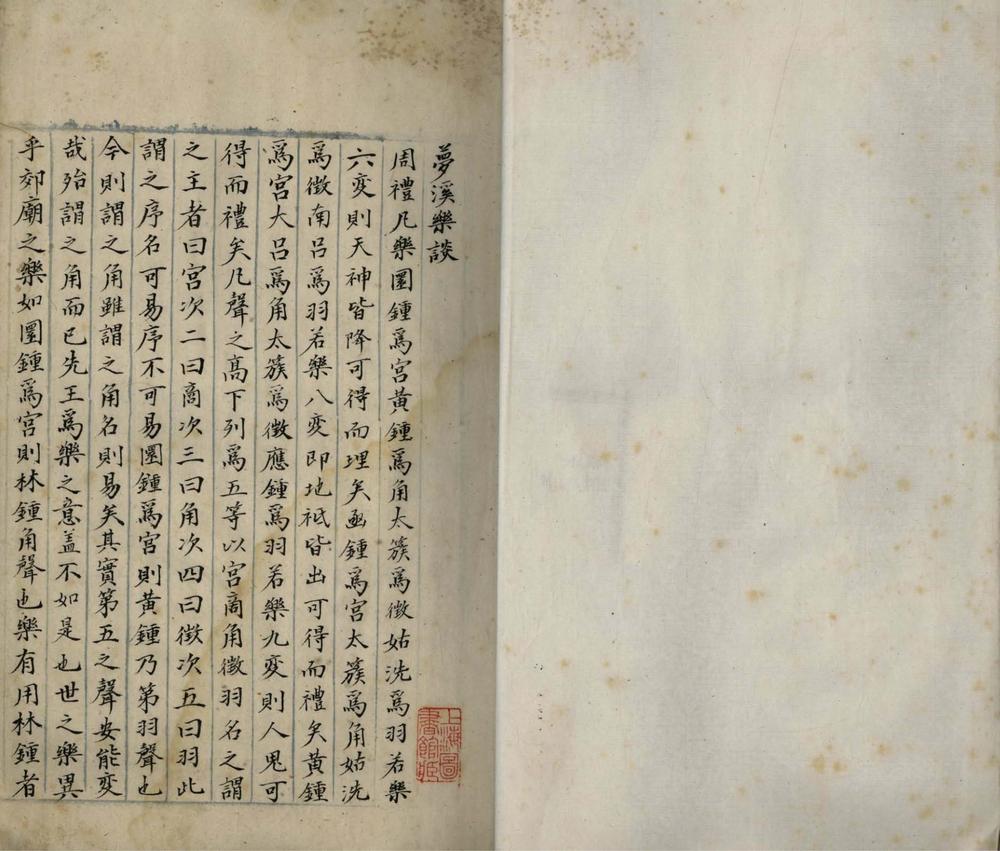 夢溪樂談
周禮凡樂圜鍾爲宮黃鍾爲角太簇爲徵姑洗爲羽若樂
六变則天神皆降可得而理矣函鍾爲宮太簇爲角姑洗
爲徵南呂爲羽若樂八变即地祇皆出可得而禮矣黃鍾
爲宮大呂爲角太簇爲徵應鍾爲羽若樂九变則人鬼可
得而禮矣凡聲之高下列爲五等以宮商角徵羽名之謂
之主者曰宮次二曰商次三曰角次四曰徵次五曰羽此
謂之序名可易序不可易圜鍾爲宮則黃鍾乃第羽聲也
今則謂之角雖謂之角名則易矣其實第五之聲安能变
哉殆謂之角而已先王爲樂之意盖不如是也世之樂異
乎郊廟之樂如圜鍾爲宮則林鍾角聲也樂有用林鍾者
上海圖
書館藏